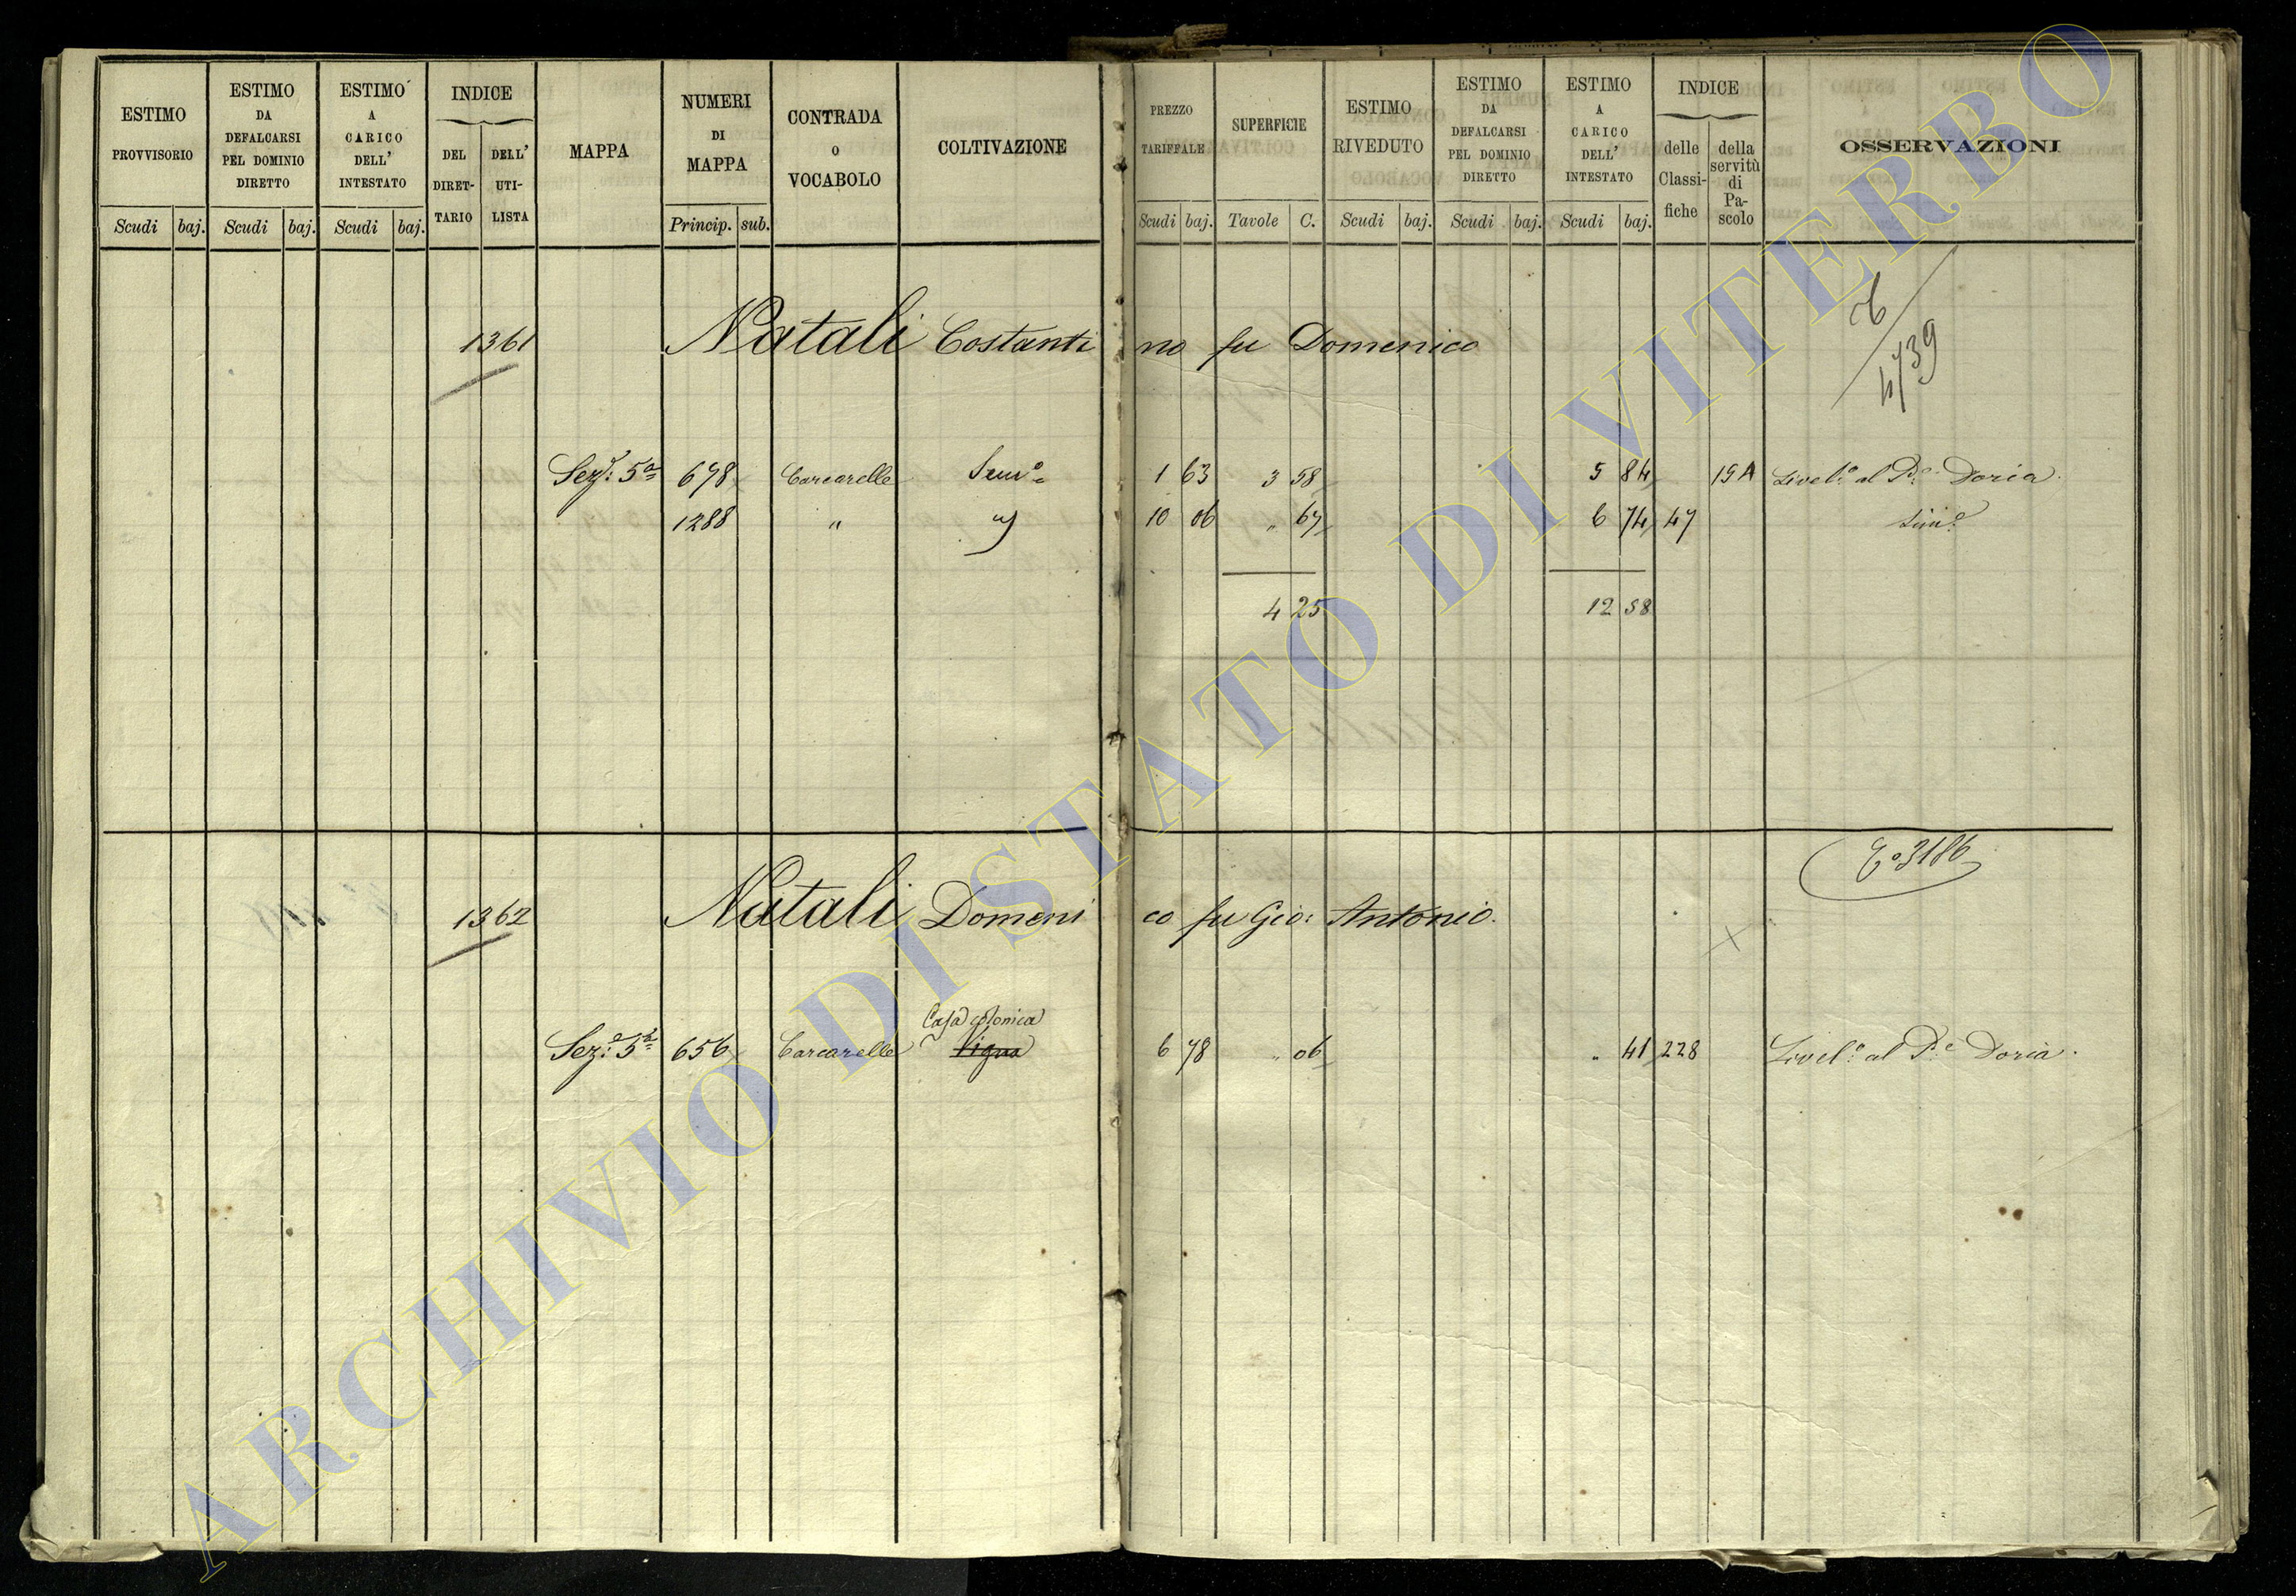 ESTIMO PROVVISORIO
ESTIMO DA DEFALCARSI PEL DOMINIO DIRETTO
ESTIMO A CARICO DELL' INTESTATO
INDICE
DEL DIRET-TARIO
DELL' UTI-LISTA
MAPPA
NUMERI DI MAPPA
CONTRADA O VOCABOLO
COLTIVAZIONE
PREZZO TARIFFALE
SUPERFICIE
ESTIMO RIVEDUTO
ESTIMO DA DEFALCARSI PEL DOMINIO DIRETTO
ESTIMO A CARICO DELL' INTESTATO
INDICE
delle Classi-fiche
della servitù di Pa-scolo
OSSERVAZIONI
Scudi baj. Scudi baj. Scudi baj. Princip. sub. Scudi baj. Tavole C. Scudi baj. Scudi baj. Scudi baj.
1361 Natali Costantino fu Domenico
Sez.e 5a 678 Carcarelle Sem.o 1 63 3 58 5 84 19A Livel.o al P.e Doria
1288 " 10 06 " 67 6 74 47 Sim.e
4 25 12 58
E° 3186
1362 Natali Domenico fu Gio: Antonio.
Casa colonica
Sez.e 5a 656 Carcarelle Vigna 6 78 " 06 " 41 228 Livel.o al P.e Doria.
ARCHIVIO DI STATO DI VITERBO